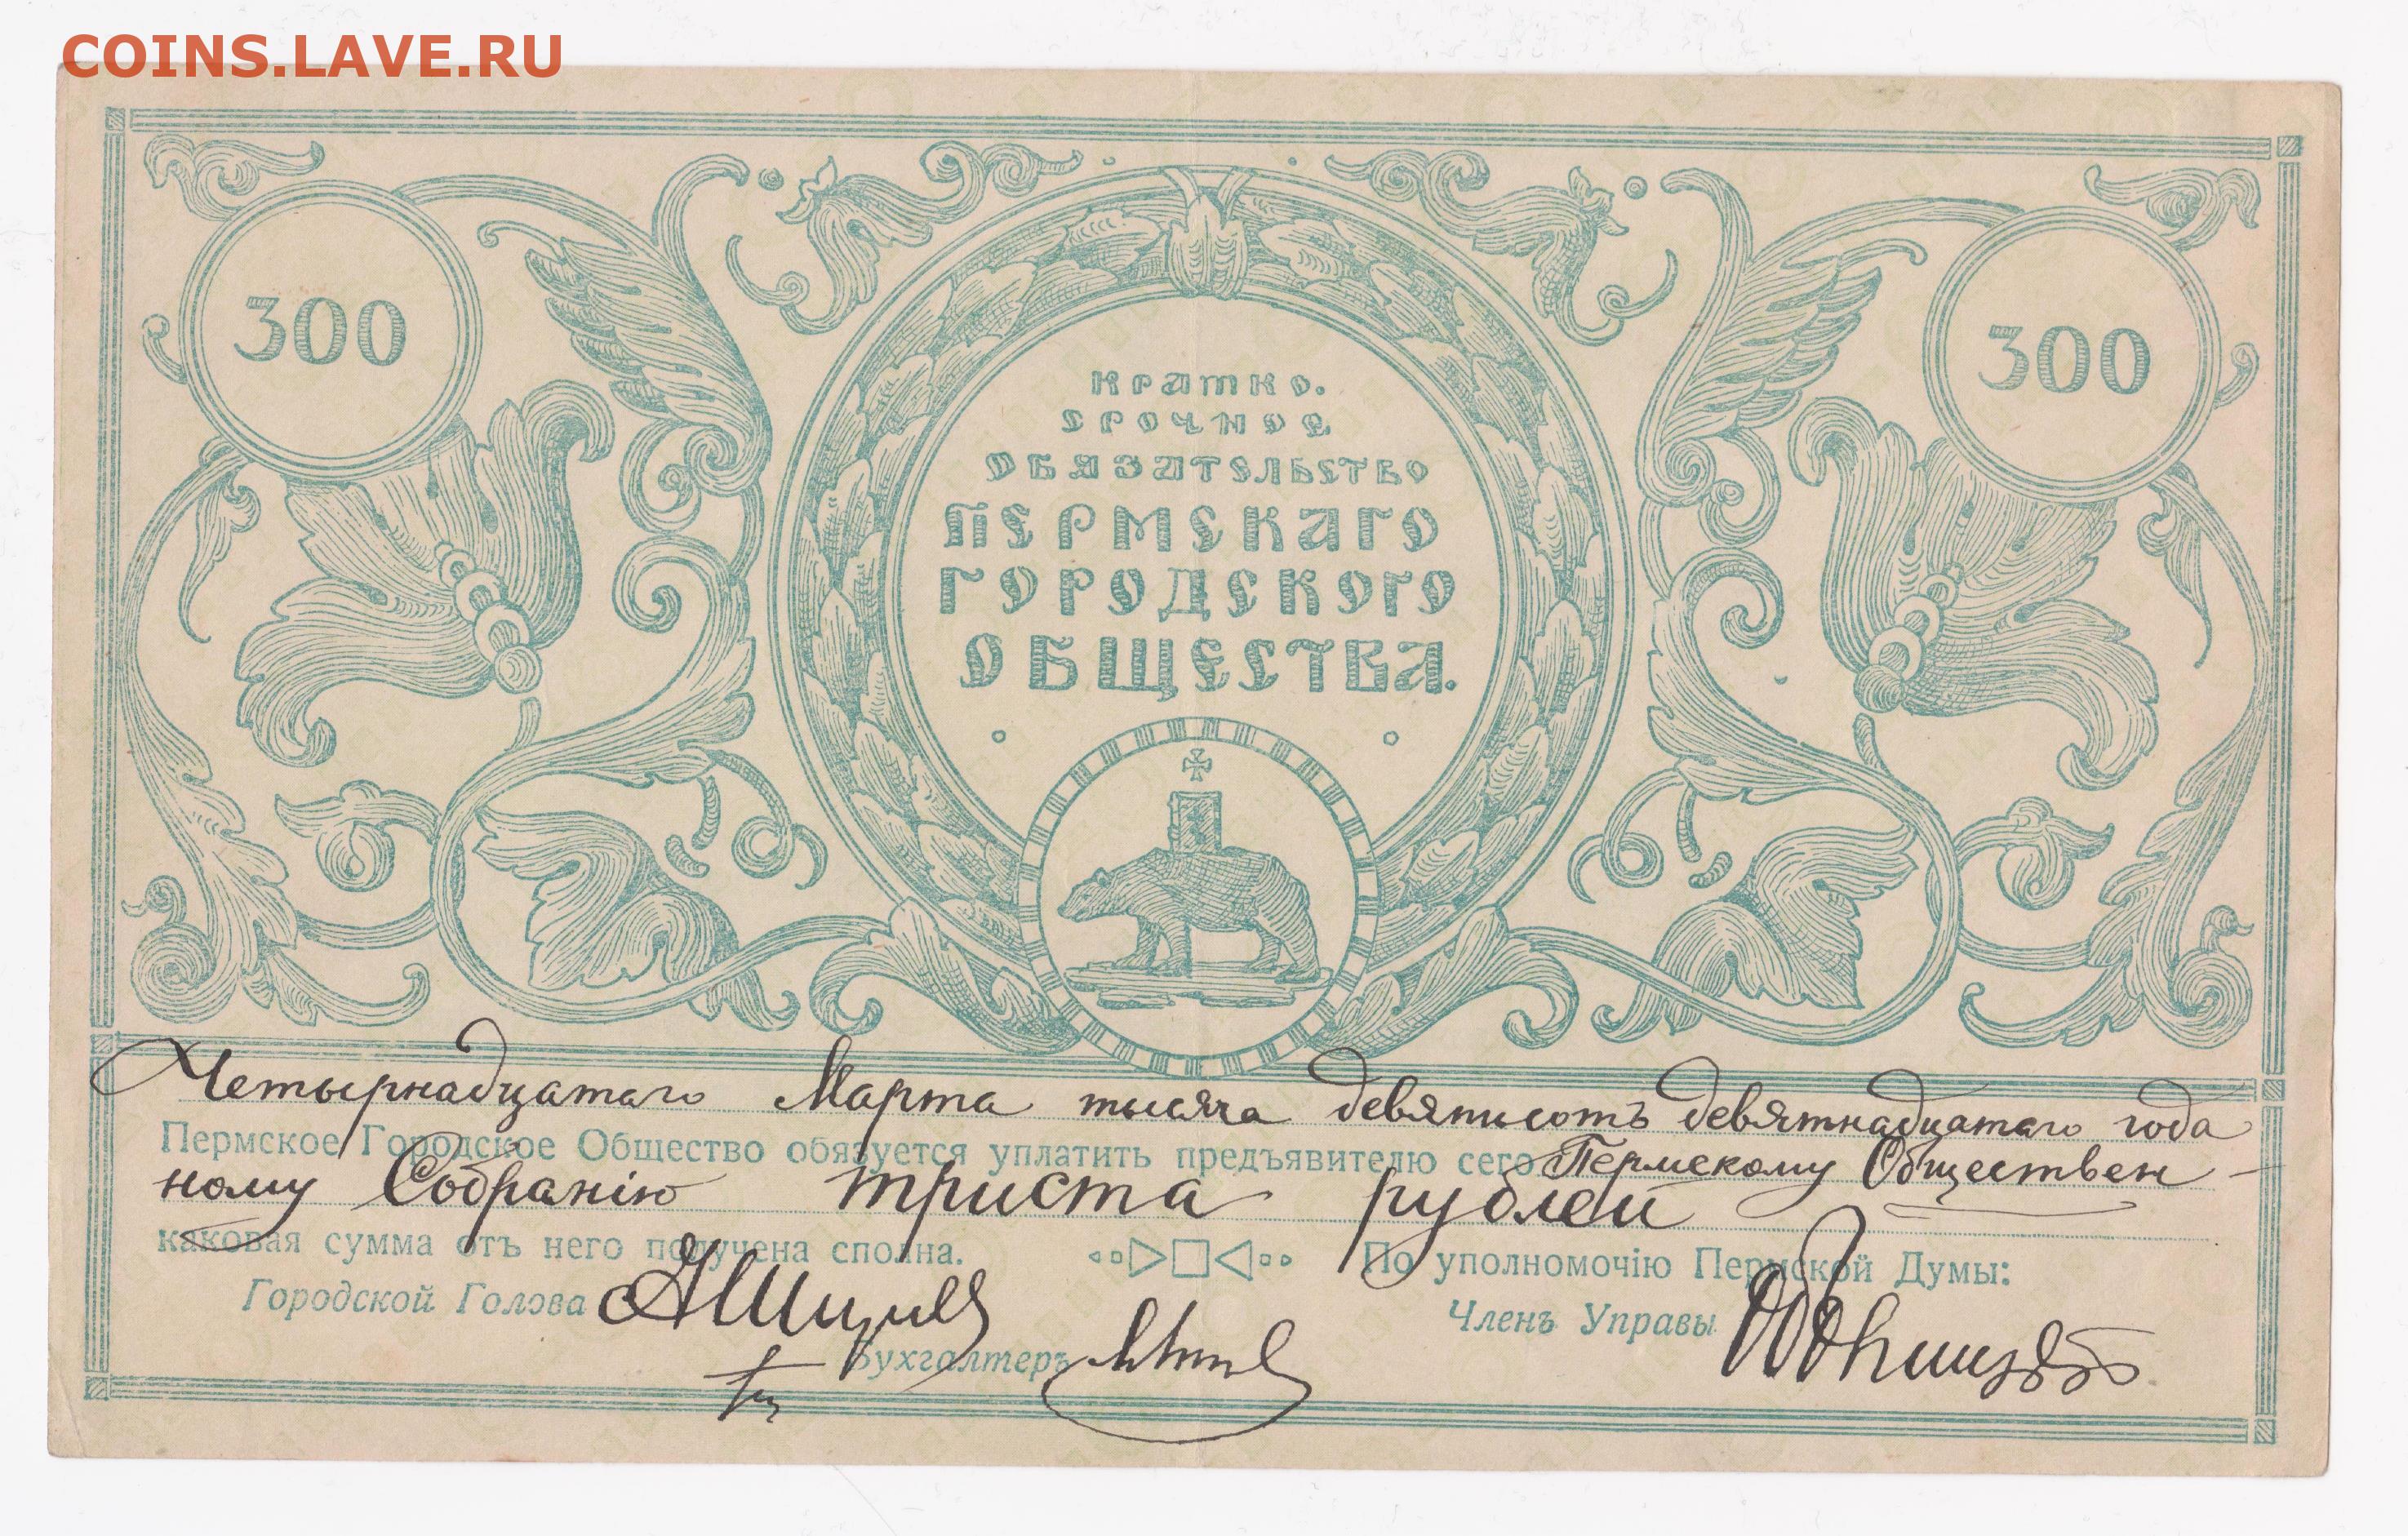 COINS.LAVE.RU
300
300
КРАТКО.
СРОЧНОЕ
ОБЯЗАТЕЛЬСТВО
ПЕРМСКАГО
ГОРОДСКОГО
ОБЩЕСТВА.
Четырнадцатаго Марта тысяча девятьсотъ девятнадцатаго года
Пермское Городское Общество обязуется уплатить предъявителю сего Пермскому Обществен-
ному Собранію триста рублей
каковая сумма отъ него получена сполна. По уполномочію Пермской Думы:
Городской Голова
Членъ Управы
Бухгалтеръ